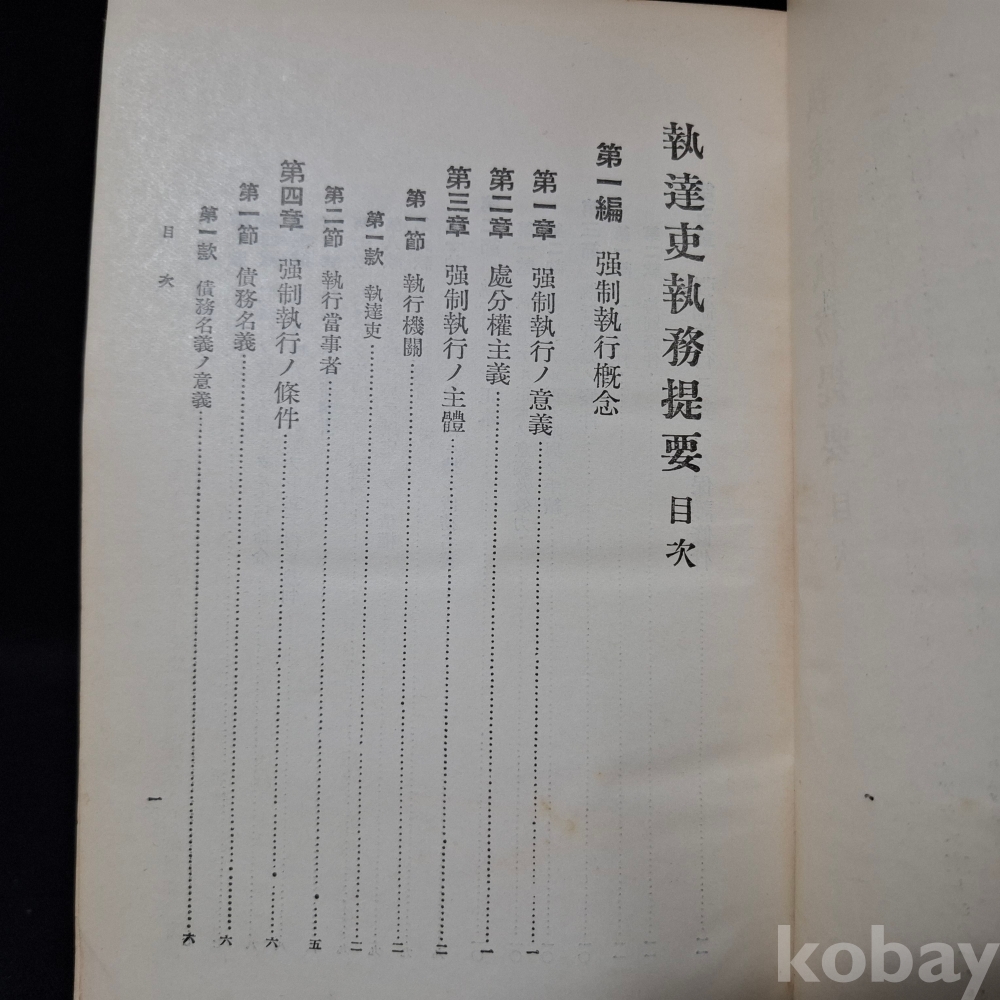 執達吏執務提要 目次
第一編 强制執行槪念
第一章 强制執行ノ意義 一
第二章 處分權主義 一
第三章 强制執行ノ主體 二
第一節 執行機關 二
第一款 執達吏 二
第二節 執行當事者 五
第四章 强制執行ノ條件 六
第一節 債務名義 六
第一款 債務名義ノ意義 六
目次
一
kobay